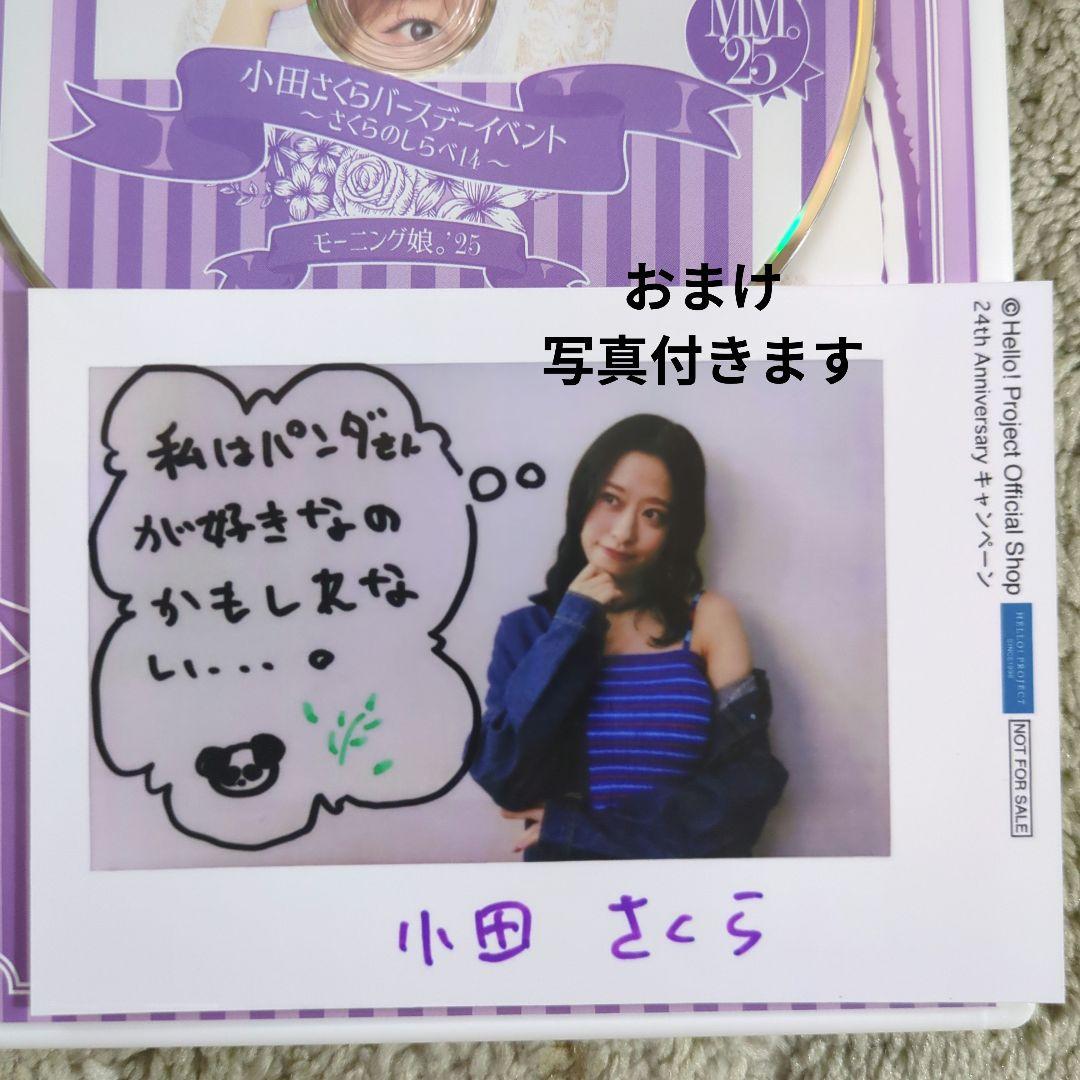 MM。
'25
小田さくらバースデーイベント
～さくらのしらべ14～
モーニング娘。'25
おまけ
写真付きます
©Hello! Project Official Shop
24th Anniversary キャンペーン
HELLO! PROJECT
SINCE 1998
NOT FOR SALE
私はパンダさん
が好きなの
かもしれな
い...。
小田 さくら